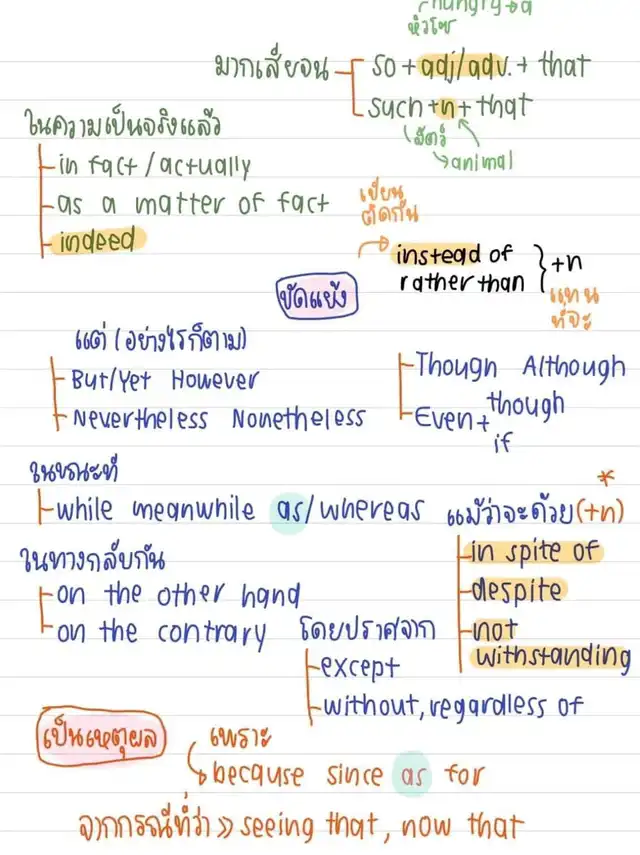 hungry → a
หิวโซ
มากเสียจน
so + adj/adv. + that
such + n + that
สัตว์
→ animal
ในความเป็นจริงแล้ว
in fact / actually
as a matter of fact
indeed
เขียน
ติดกัน
instead of
rather than
} + n
แทน
ที่จะ
ขัดแย้ง
แต่ (อย่างไรก็ตาม)
But/Yet However
Nevertheless Nonetheless
Though Although
Even + though
if
ในขณะที่
while meanwhile as/whereas
*
แม้ว่าจะด้วย (+n)
in spite of
despite
not
withstanding
ในทางกลับกัน
on the other hand
on the contrary
โดยปราศจาก
except
without, regardless of
เป็นเหตุผล
เพราะ
because since as for
จากกรณีที่ว่า >> seeing that, now that